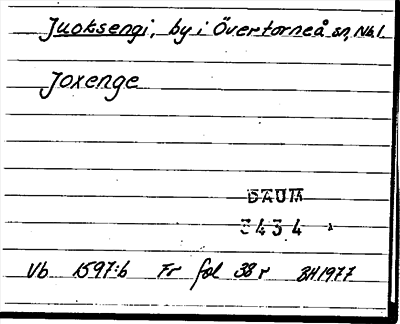 Juoksengi, by i Övertorneå sn, Nbl.
Joxenge
DAUM
3434
Vb 1597:6 Fr fol 38 r BH 1977